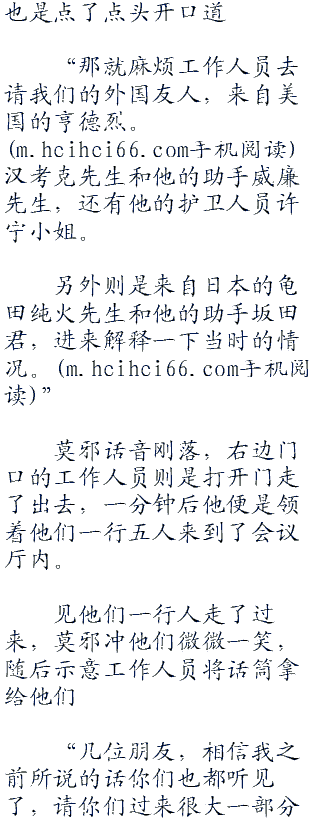 也是点了点头开口道
“那就麻烦工作人员去
请我们的外国友人，来自美
国的亨德烈。
(m.hcihci66.com手机阅读)
汉考克先生和他的助手威廉
先生，还有他的护卫人员许
宁小姐。
另外则是来自日本的龟
田纯火先生和他的助手坂田
君，进来解释一下当时的情
况。(m.hcihci66.com手机阅
读)”
莫邪话音刚落，右边门
口的工作人员则是打开门走
了出去，一分钟后他便是领
着他们一行五人来到了会议
厅内。
见他们一行人走了过
来，莫邪冲他们微微一笑，
随后示意工作人员将话筒拿
给他们
“几位朋友，相信我之
前所说的话你们也都听见
了，请你们过来很大一部分